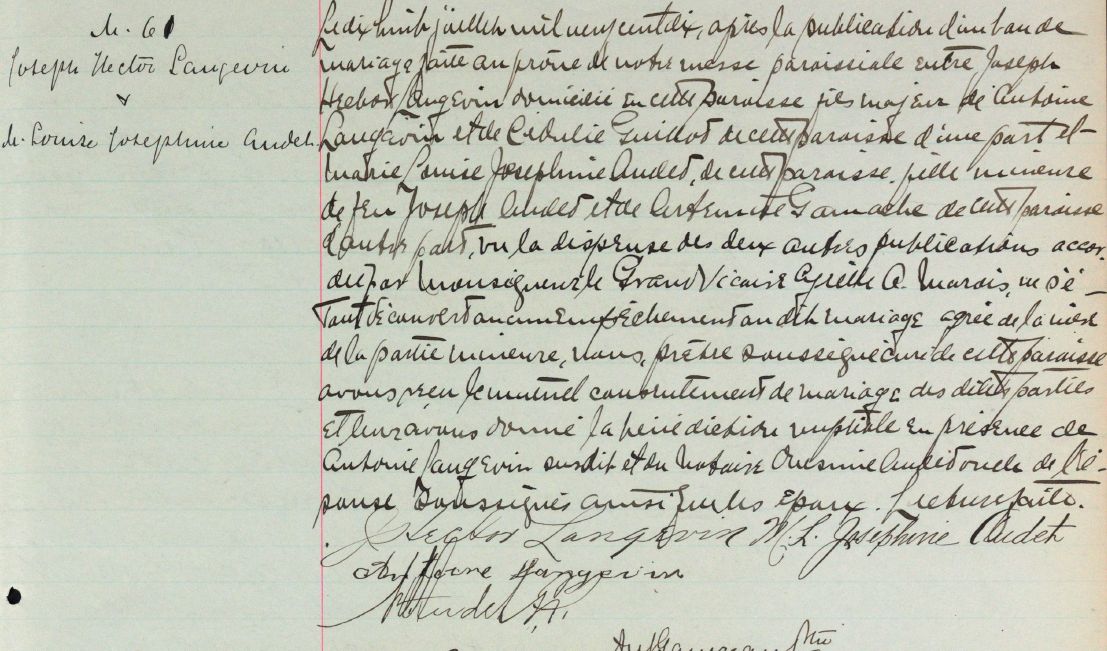 M. 61
Joseph Hector Langevin
&
M. Louise Josephine Audet
Le dix huit juillet mil neuf cent dix, après la publication d'un ban de
mariage faite au prône de notre messe paroissiale entre Joseph
Hector Langevin domicilié en cette paroisse fils majeur de Antoine
Langevin et de Cédulie Guidot de cette paroisse d'une part et
Marie Louise Josephine Audet, de cette paroisse, fille mineure
de feu Joseph Audet et de Artémise Gamache de cette paroisse
d'autre part, vu la dispense des deux autres publications accor-
dée par Monseigneur le Grand Vicaire A. Marois, ne s'é-
tant découvert aucun empêchement au dit mariage agréé de la mère
de la partie mineure, nous, prêtre soussigné curé de cette paroisse
avons reçu le mutuel consentement de mariage des dites parties
et leur avons donné la bénédiction nuptiale en présence de
Antoine Langevin susdit et du Notaire Onésime Audet oncle de l'é-
pouse soussignés ainsi que les époux. Lecture faite.
Hector Langevin M. L. Josephine Audet
Antoine Langevin
Audet
Ptre